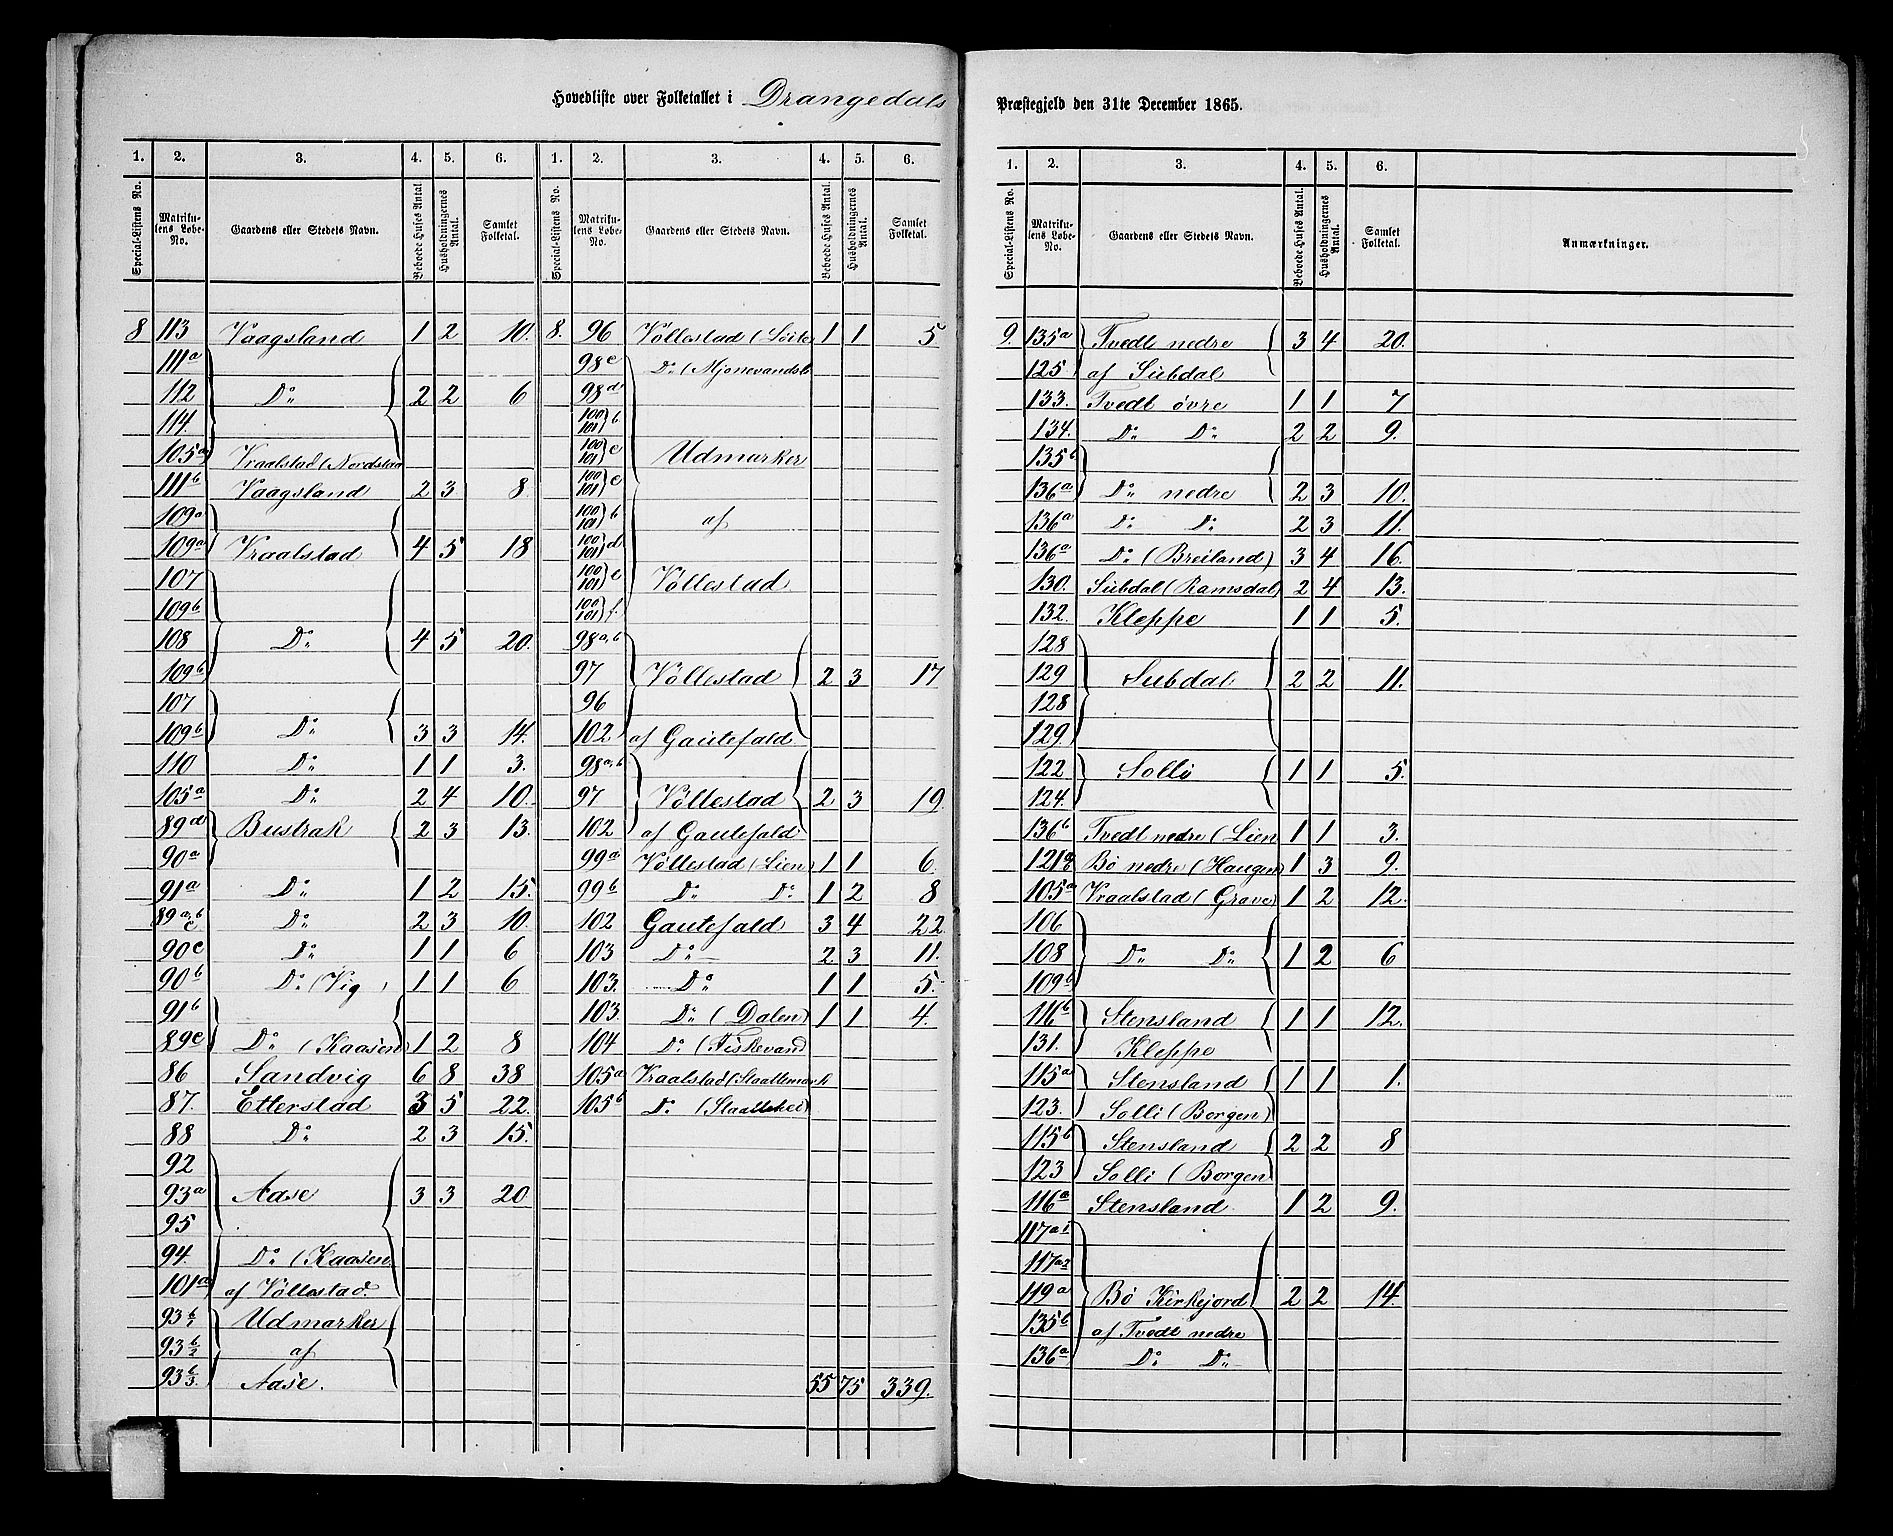 Hovedliste over Folketallet i Drangedals Præstegjeld den 31te December 1865.
1. 2. 3. 4. 5. 6. 1. 2. 3. 4. 5. 6.
Special-Listens No. Matrikulens Løbe-No. Gaardens eller Stedets Navn. Beboede Huses Antal. Husholdningernes Antal. Samlet Folketal. Special-Listens No. Matrikulens Løbe-No. Gaardens eller Stedets Navn. Beboede Huses Antal. Husholdningernes Antal. Samlet Folketal.
8 113 Vaagsland 1 2 10.
111a
112 Do 2 2 6
114.
105a Vraalstad (Nordstaa
111b Vaagsland 2 3 8
109a
109a Vraalstad 4 5 18
107
109b
108 Do 4 5 20.
109b
107
109b Do 3 3 14.
110 Do 1 1 3.
105a Do 2 4 10.
89d Bustrak 2 3 13.
90a
91a Do 1 2 15.
89a,b c Do 2 3 10.
90c Do 1 1 6
90b Do (Vig) 1 1 6
91b
89e Do (Kaasen) 1 2 8
86 Sandvig 6 8 38
87. Etterstad 3 5 22.
88 Do 2 3 15.
92
93a Aase 3 3 20
95
94. Do (Kaasen.
101a af Völlestad.
93b/1 Udmarker
93b/2 af
93b/3. Aase.
8. 96 Völlestad (Löite 1 1 5
98c Do (Mjonevandsl
98d
100 101 b
100 101 c Udmarker
100 101 e
100 101 b af
100 101 d
100 101 e Völlestad
100 101 f.
98a,b
97 Völlestad 2 3 17
96
102 af Gautefald
98a,b
97 Völlestad 2 3 19.
102 af Gautefald
99a Völlestad (Lien) 1 1 6.
99b Do Do 1 2 8
102 Gautefald 3 4 22.
103 Do 2 3 11.
103. Do 1 1 5.
103. Do (Dalen) 1 1 4.
104 Do (Fiskevand
105a Vraalstad (Slaattemark
105b Do (Slaattehei)
55 75 339.
1. 2. 3. 4. 5. 6.
Special-Listens No. Matrikulens Løbe-No. Gaardens eller Stedets Navn. Beboede Huses Antal. Husholdningernes Antal. Samlet Folketal. Anmærkninger.
9. 135a Tvedt nedre 3 4 20.
125 af Subdal
133. Tvedt övre 1 1 7
134. Do Do 2 2 9.
135b
136a Do nedre 2 3 10.
136a Do Do 2 3 11.
136a Do (Breiland) 3 4 16.
130. Subdal (Ramsdal) 2 4 13.
132. Kleppe 1 1 5.
128
129 Subdal 2 2 11.
128
129.
122 Solli 1 1 5.
124.
136b Tvedt nedre (Lien 1 1 3.
121a Bö nedre (Haugen) 1 3 9.
105a Vraalstad (Grave) 1 2 12.
106
108 Do Do 1 2 6
109b
116b Stensland 1 1 12.
131. Kleppe
115a Stensland 1 1 1.
123. Solli (Borgen)
115b Stensland 2 2 8
123 Solli (Borgen
116a Stensland 1 2 9.
117a1
117a2
119a Bö Kirkejord 2 2 14.
135b af Tvedt nedre
136a Do Do